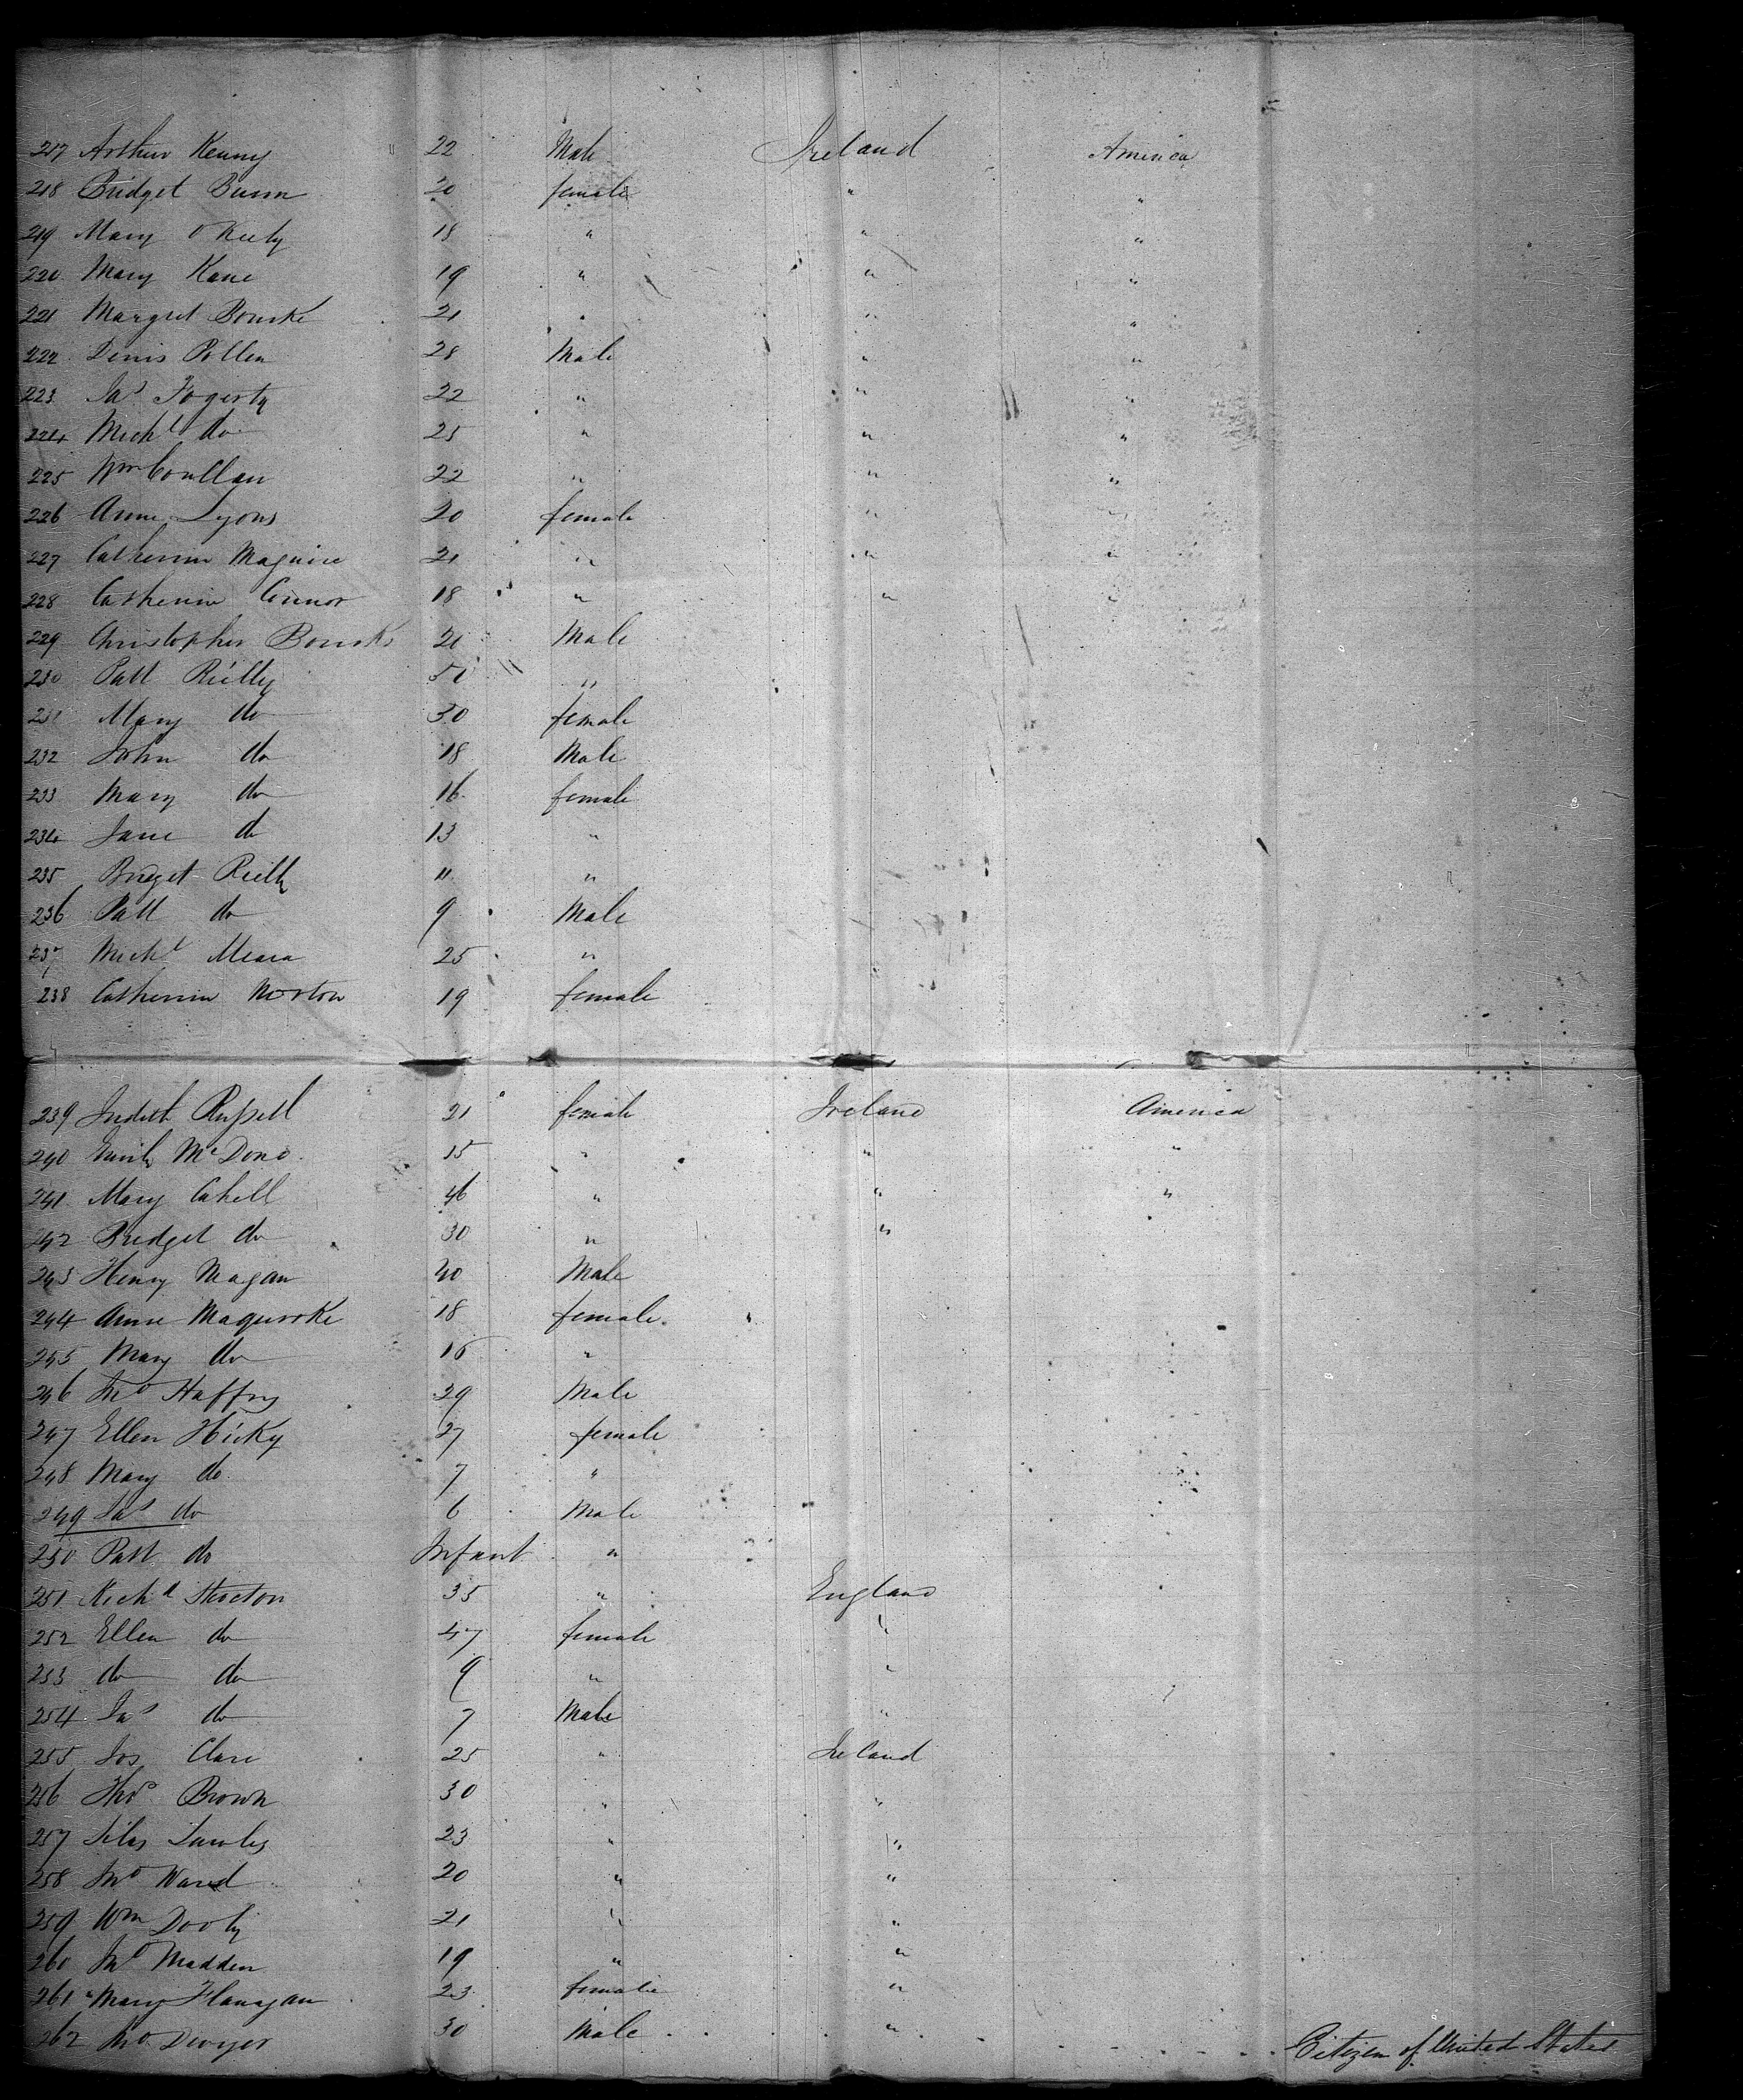 217 Arthur Kenny 22 Male Ireland America
218 Bridget Bunn 20 female " "
219 Mary O Keely 18 " " "
220 Mary Kane 19 " " "
221 Margret Bourke 21 " " "
222 Denis Pollen 28 Male " "
223 Jas Fogerty 22 " " "
224 Michl do 25 " " "
225 Wm Coullan 22 " " "
226 Anne Lyons 20 female " "
227 Catherine Maguire 21 " " "
228 Catherine Connor 18 " " "
229 Christopher Bourke 21 Male
230 Patt Reilly 50 "
231 Mary do 30 female
232 John do 18 Male
233 Mary do 16 female
234 Jane do 13 "
235 Bridget Reilly 11 "
236 Patt do 9 Male
237 Michl Meara 25 "
238 Catherine Norton 19 female
239 Judith Russell 21 female Ireland America
240 McDono 15 " " "
241 Mary Cahill 46 " " "
242 Bridget do 30 " "
243 Henry Magan 20 Male
244 Anne Maquirke 18 female
245 Mary do 16 "
246 Jno Haffry 29 Male
247 Ellen Hicky 27 female
248 Mary do 7 "
249 Jas do 6 Male
250 Patt do Infant "
251 Richd Stocton 35 " England
252 Ellen do 47 female "
253 do do 9 " "
254 Jas do 7 Male "
255 Jos Clare 25 " Ireland
256 Thos Brown 30 " "
257 Silas 23 " "
258 Jno Ward 20 " "
259 Wm Dooly 21 " "
260 Jno Madden 19 " "
261 Mary Flanagan 23 female "
262 Jno Dwyer 30 Male " Citizen of United States